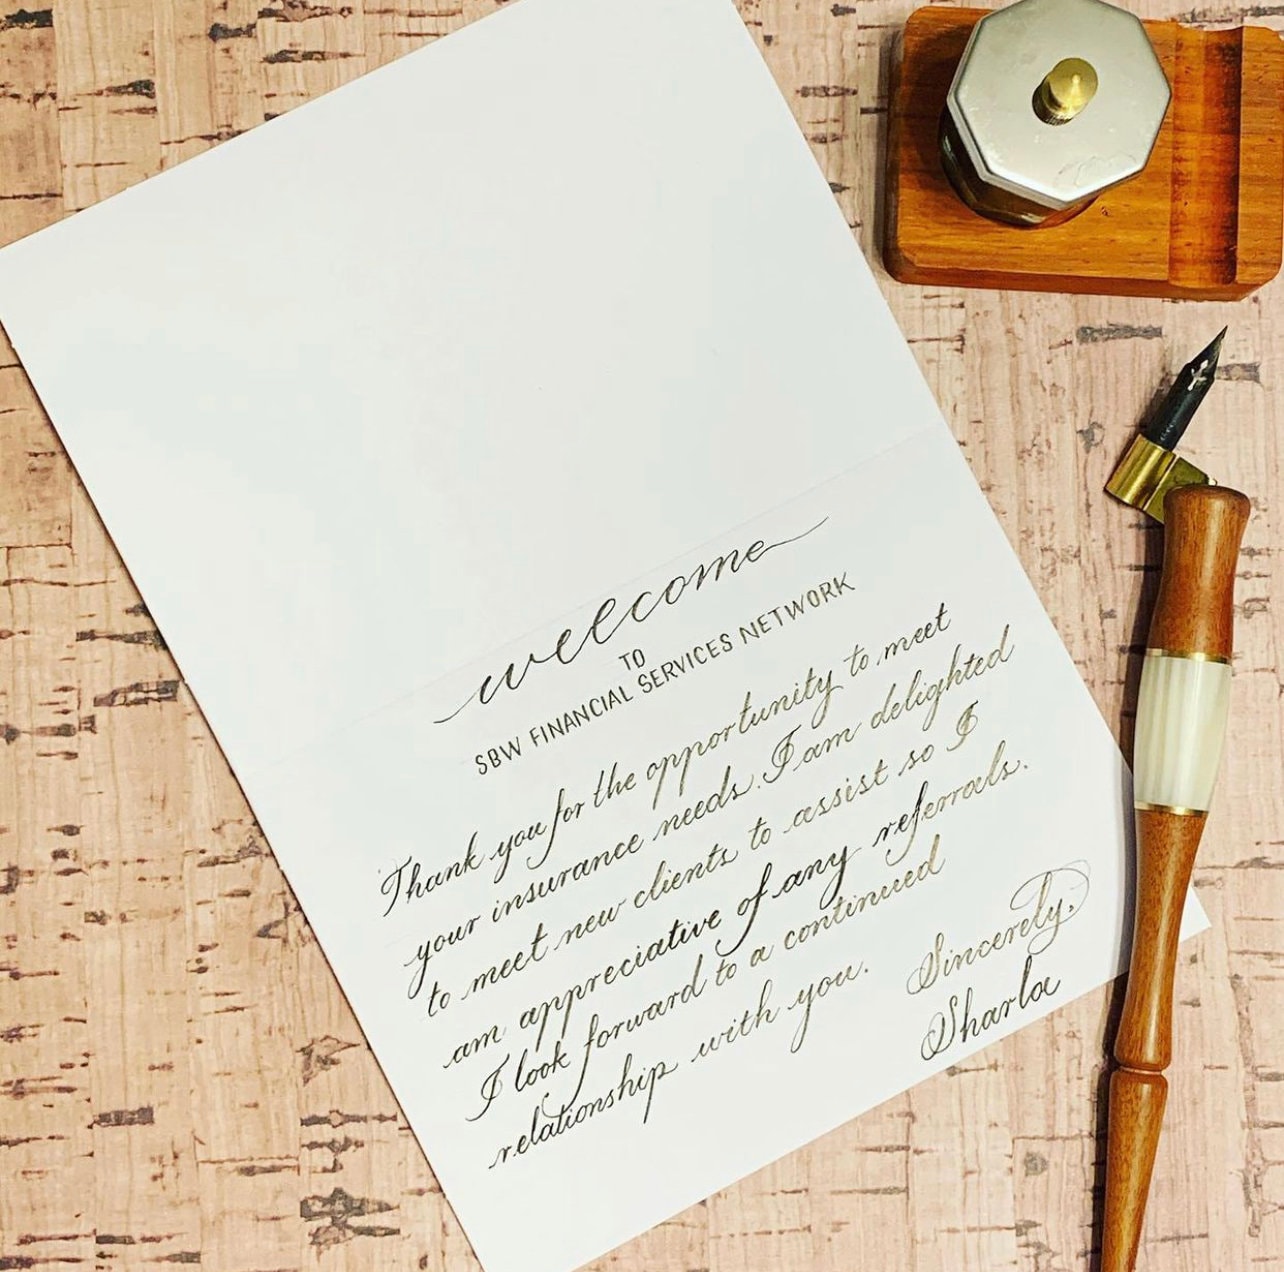 welcome
TO
SBW FINANCIAL SERVICES NETWORK
Thank you for the opportunity to meet
your insurance needs. I am delighted
to meet new clients to assist so I
am appreciative of any referrals.
I look forward to a continued
relationship with you.
Sincerely,
Sharla